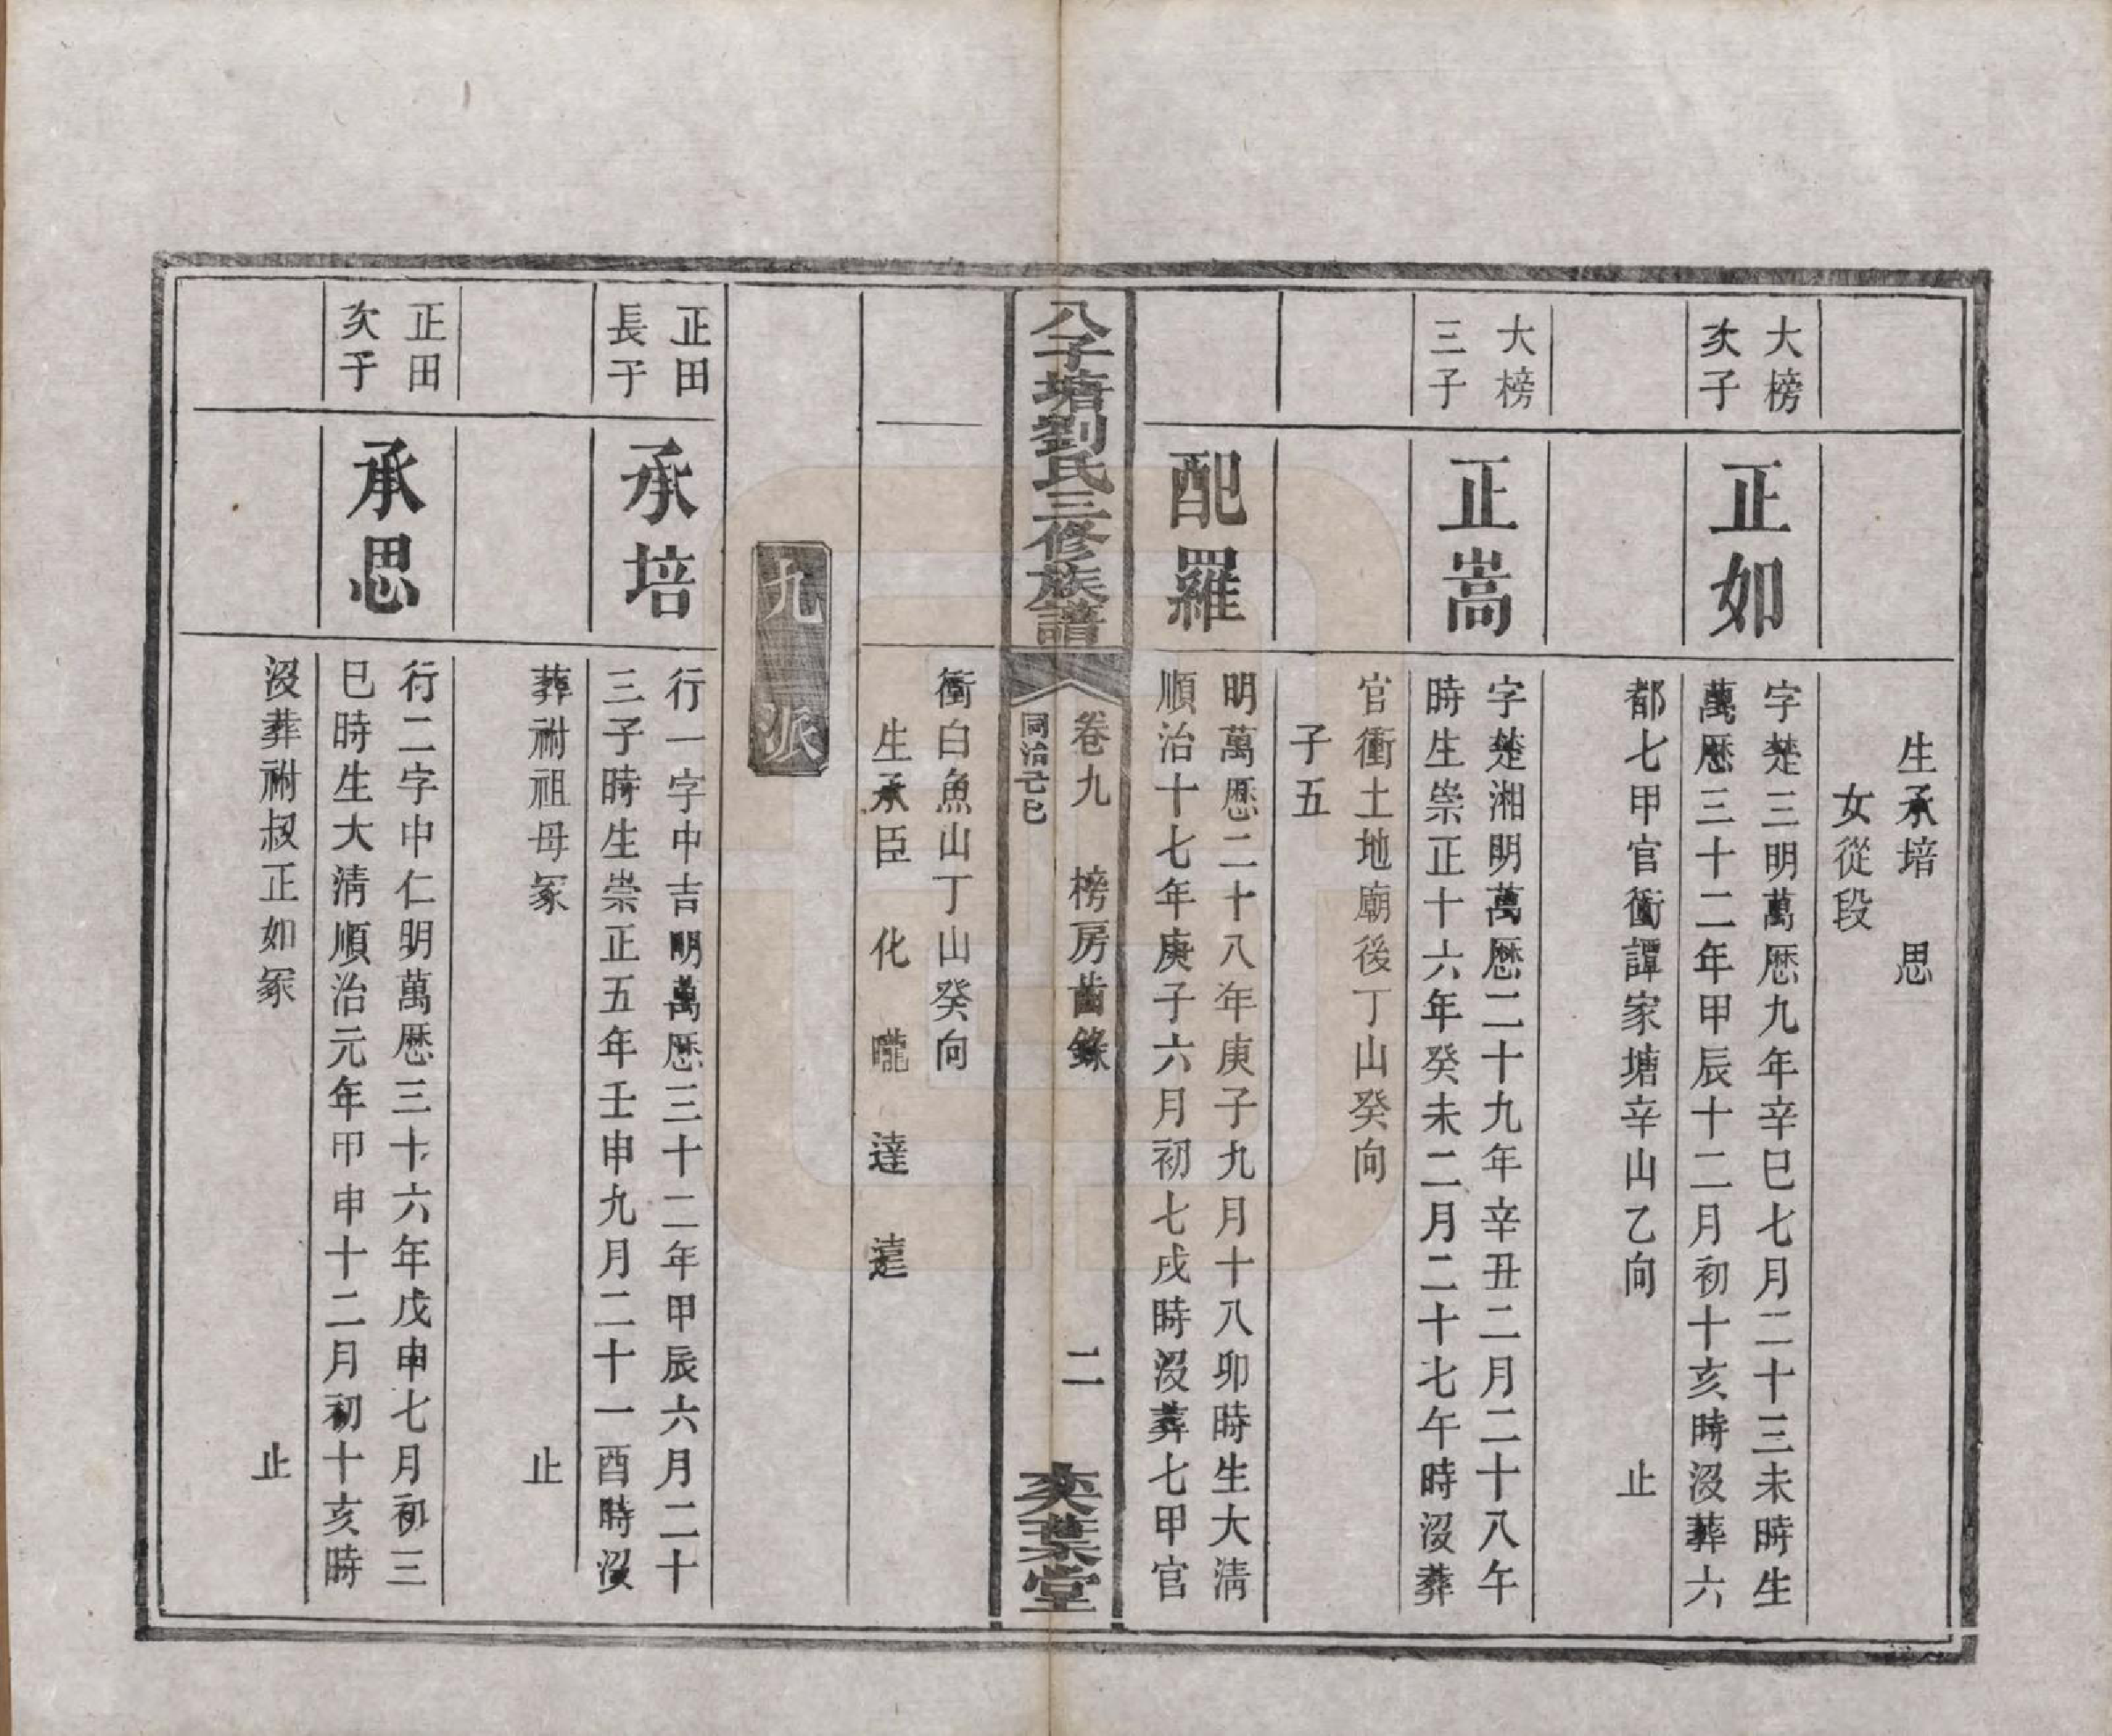 生承培　思
女從段
大榜
次子
正如
字楚三明萬厯九年辛巳七月二十三未時生
萬厯三十二年甲辰十二月初十亥時沒葬六
都七甲官衝譚家塘辛山乙向　止
大榜
三子
正嵩
字楚湘明萬厯二十九年辛丑二月二十八午
時生崇正十六年癸未二月二十七午時沒葬
官衝土地廟後丁山癸向
子五
配羅
明萬厯二十八年庚子九月十八卯時生大淸
順治十七年庚子六月初七戌時沒葬七甲官
八子塘劉氏三修族譜
卷九　榜房齒錄　二
同治己巳
奕葉堂
衝白魚山丁山癸向
生承臣　化　曨　達　遠
九派
正田
長子
承培
行一字中吉明萬厯三十二年甲辰六月二十
三子時生崇正五年壬申九月二十一酉時沒
葬祔祖母冢　止
正田
次子
承思
行二字中仁明萬厯三十六年戊申七月初三
巳時生大淸順治元年甲申十二月初十亥時
沒葬祔叔正如冢　止